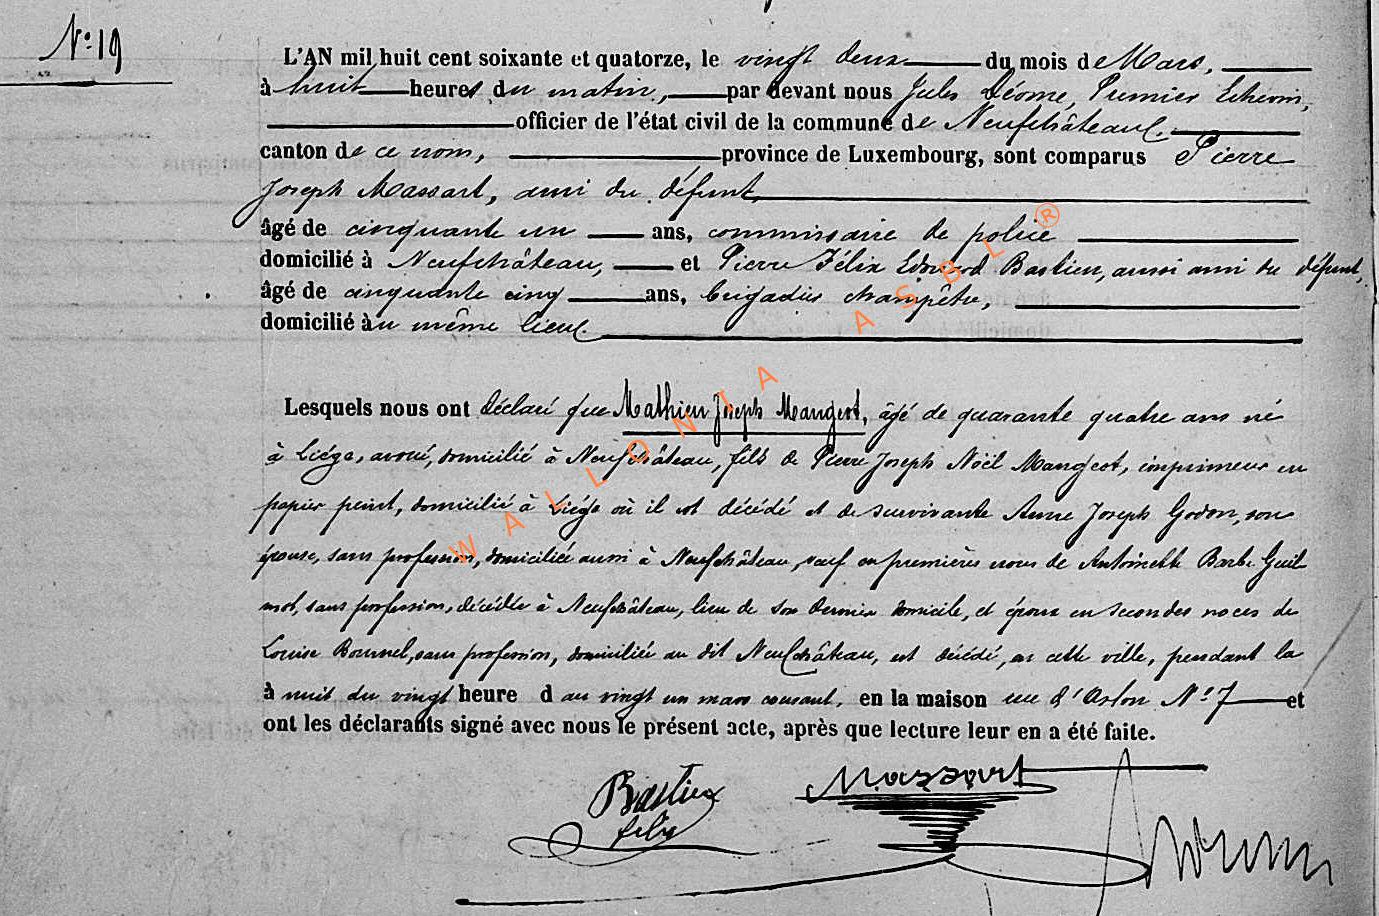 N° 19
L'AN mil huit cent soixante et quatorze, le vingt deux du mois de Mars,
à huit heures du matin, par devant nous Jules Déome, Premier Echevin,
officier de l'état civil de la commune de Neufchâteau,
canton de ce nom, province de Luxembourg, sont comparus Pierre
Joseph Massart, ami du défunt,
âgé de cinquante un ans, commissaire de police
domicilié à Neufchâteau, et Pierre Félix Edouard Bastien, aussi ami du défunt,
âgé de cinquante cinq ans, brigadier champêtre,
domicilié au même lieu
Lesquels nous ont déclaré que Mathieu Joseph Mangeot, âgé de quarante quatre ans né
à Liége, avoué, domicilié à Neufchâteau, fils de Pierre Joseph Noël Mangeot, imprimeur en
papier peint, domicilié à Liége où il est décédé et de survivante Anne Joseph Godon, son
épouse, sans profession, domiciliée aussi à Neufchâteau, veuf en premières noces de Antoinette Barbe Guil
mot, sans profession, décédée à Neufchâteau, lieu de son dernier domicile, et époux en secondes noces de
Louise Bournel, sans profession, domiciliée au dit Neufchâteau, est décédé, en cette ville, pendant la
à nuit du vingt heure d au vingt un mars courant, en la maison rue d'Arlon N° 7 et
ont les déclarants signé avec nous le présent acte, après que lecture leur en a été faite.
Bastien Massart
félix
WALLONIA ASBL ®